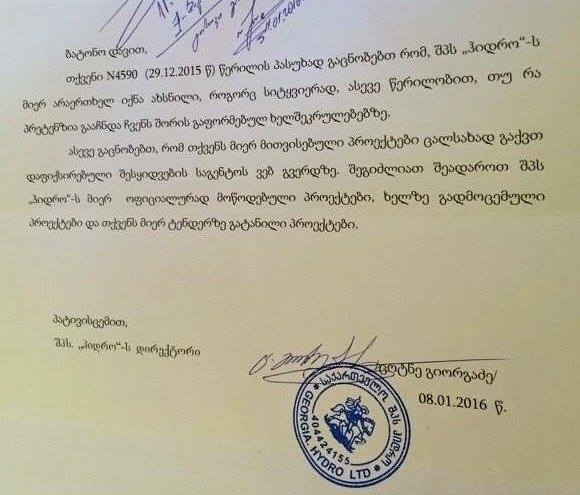 11.01.2016
ბატონო დავით,
თქვენი N4590 (29.12.2015 წ) წერილის პასუხად გაცნობებთ რომ, შპს „ჰიდრო“-ს
მიერ არაერთხელ იქნა ახსნილი, როგორც სიტყვიერად, ასევე წერილობით, თუ რა
პრეტენზია გააჩნდა ჩვენს შორის გაფორმებულ ხელშეკრულებებზე.
ასევე გაცნობებთ, რომ თქვენს მიერ მითვისებული პროექტები ცალსახად გაქვთ
დაფიქსირებული შესყიდვების სააგენტოს ვებ გვერდზე. შეგიძლიათ შეადაროთ შპს
„ჰიდრო“-ს მიერ ოფიციალურად მოწოდებული პროექტები, ხელზე გადმოცემული
პროექტები და თქვენს მიერ ტენდერზე გატანილი პროექტები.
პატივისცემით,
შპს. „ჰიდრო“-ს დირექტორი
გიორგაძე/
08.01.2016 წ.
საქართველო. შპს ჰიდრო
404424155
GEORGIA. HYDRO LTD